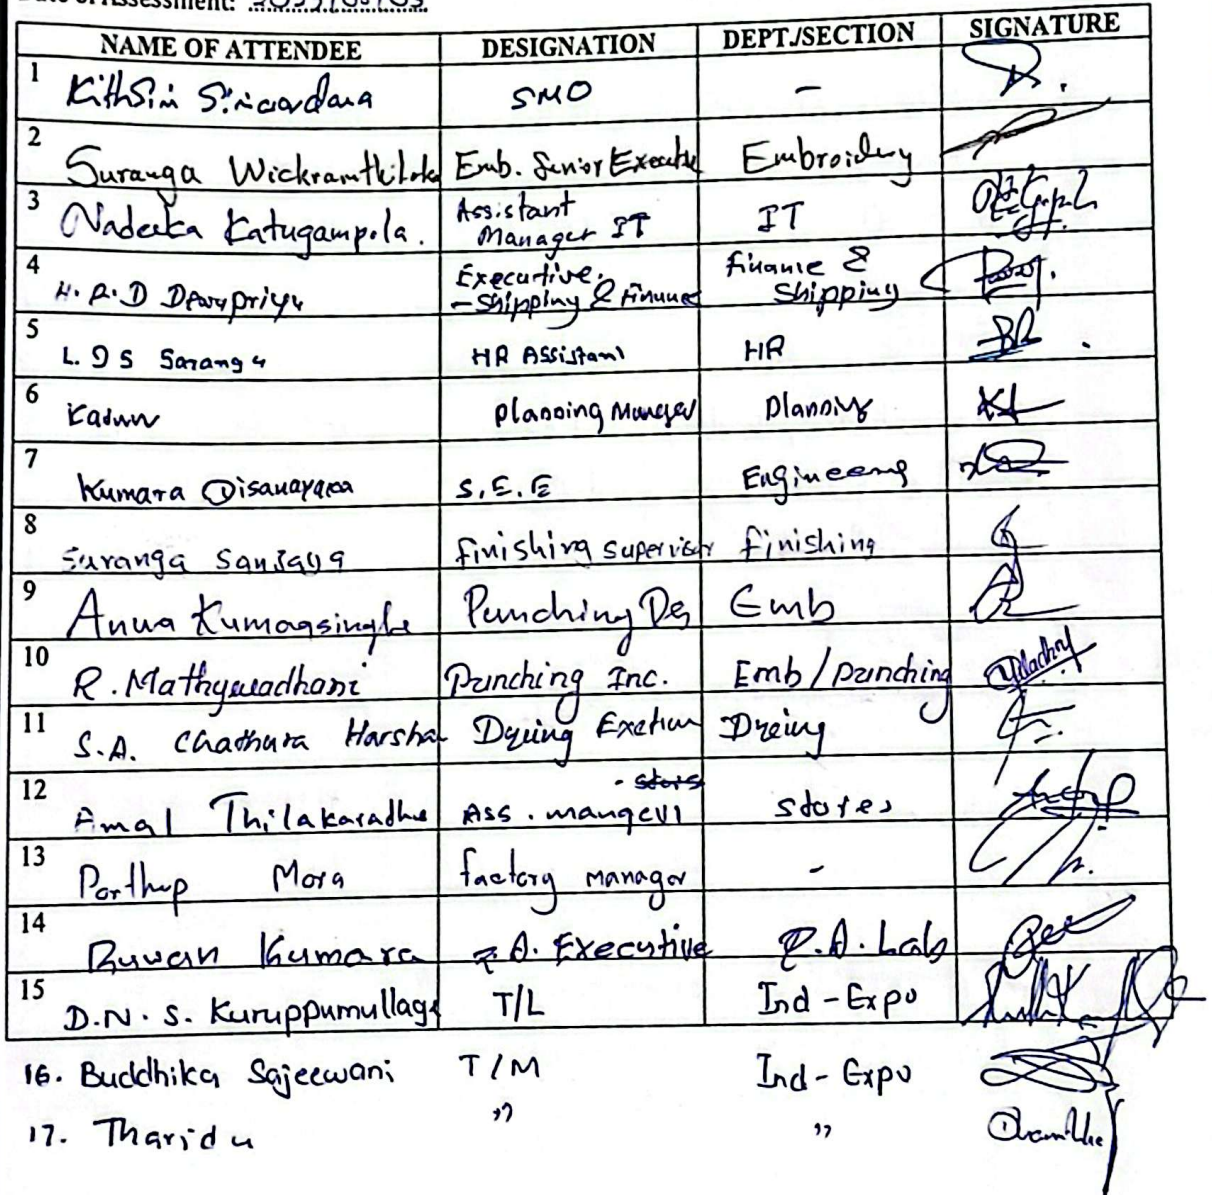 Date of Assessment:
NAME OF ATTENDEE DESIGNATION DEPT./SECTION SIGNATURE
1 Kithsiri Siriwardana SMO –
2 Suranga Wickramthilaka Emb. Senior Executive Embroidery
3 Nadeeka Katugampola. Assistant Manager IT IT
4 H.R.D Dewapriya Executive - Shipping & Finance Finance & Shipping
5 L.D S Saranga HR Assistant HR
6 Kasun Planning Manager Planning
7 Kumara Disanayaka S.E.E Engineering
8 Suranga Sanjaya Finishing Supervisor Finishing
9 Anura Kumarasinghe Punching Emb
10 R. Punching Inc. Emb/Punching
11 S.A. Chathura Harsha Dyeing Dyeing
12 Amal Thilakarathne Ass. stores
13 Mora factory manager –
14 Ruwan Kumara Q.A. Executive Q.A. Lab
15 D.N.S. Kuruppumullage T/L Ind - Expo
16. Buddhika Sajeewani T/M Ind - Expo
17. Tharidu " "